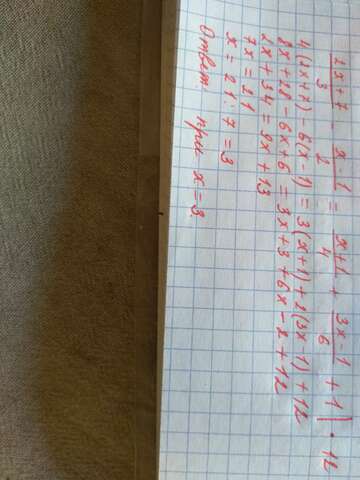 (2x+7)/3 - (x-1)/2 = (x+1)/4 + (3x-1)/6 + 1 | · 12
4(2x+7) - 6(x-1) = 3(x+1) + 2(3x-1) + 12
8x + 28 - 6x + 6 = 3x + 3 + 6x - 2 + 12
2x + 34 = 9x + 13
7x = 21
x = 21 : 7 = 3
Ответ: при x = 3.